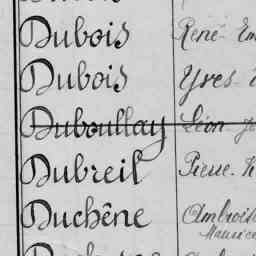 Dubois René
Dubois Yves
Duboullay Léon
Dubreil Pierre
Duchêne Ambroise
Maurice